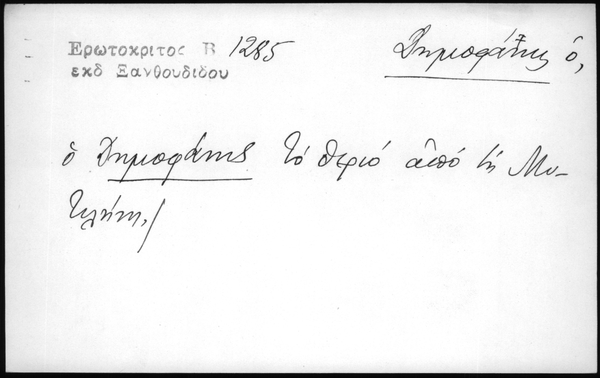 Ερωτοκριτος Β 1285
εκδ Ξανθουδιδου
Δημοφάνης ὁ,
ὁ Δημοφάνης τὸ θεριό ἀπό τή Μυ-
τιλήνη,/